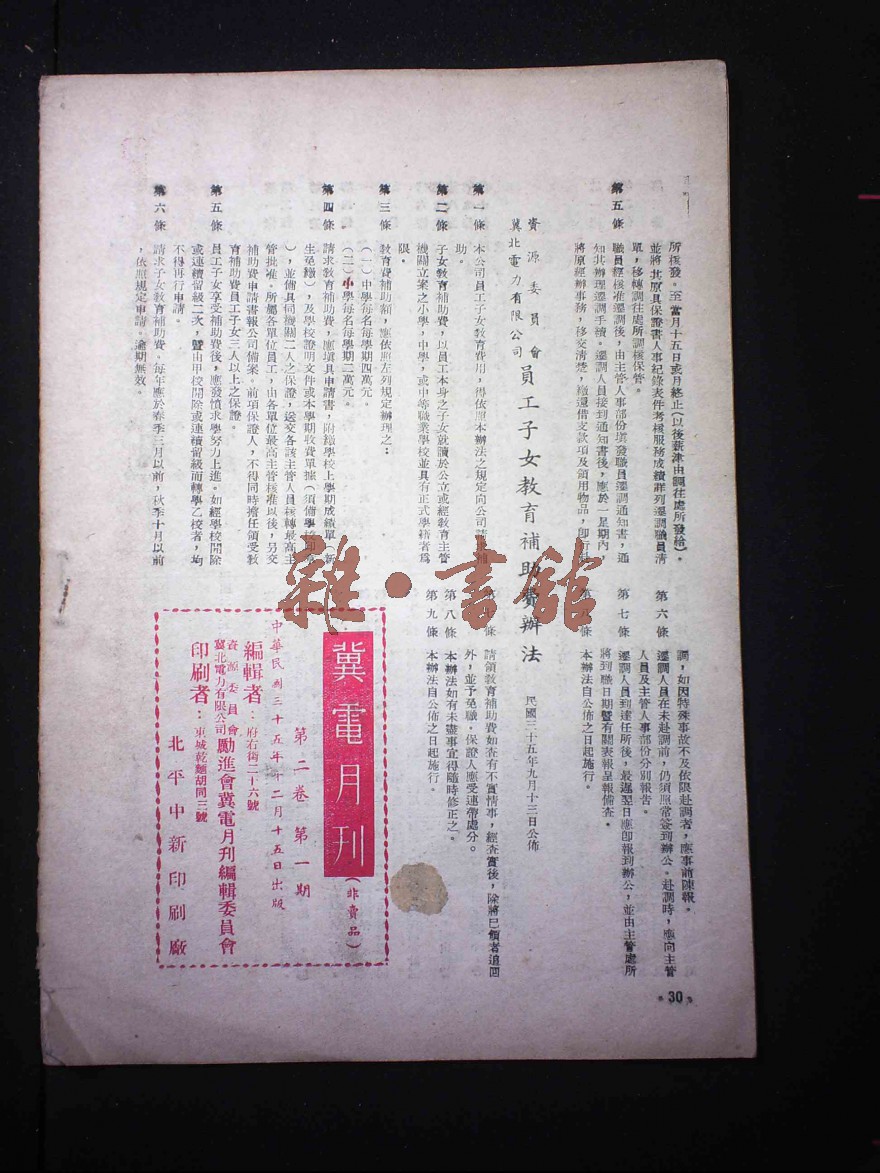 所核發。至當月十五日或月終止(以後薪津由調往處所發給)。
並將其原具保證書人事紀錄表件考核服務成績詳列遷調職員清
單,移轉調往處所調核保管。
第五條 職員經核准遷調後,由主管人事部份填發職員遷調通知書,通
知其辦理遷調手續。遷調人員接到通知書後,應於一星期內,
將原經辦事務,移交清楚,繳還借支款項及領用物品,即行赴
調,如因特殊事故不及依限赴調者,應事前陳報。
第六條 遷調人員在未赴調前,仍須照常簽到辦公。赴調時,應向主管
人員及主管人事部份分別報告。
第七條 遷調人員到達任所後,最遲翌日應卽報到辦公,並由主管處所
將到職日期曁有關表報呈報備查。
本辦法自公佈之日起施行。
資源委員會
冀北電力有限公司
員工子女教育補助費辦法
民國三十五年九月十三日公佈
第一條 本公司員工子女教育費用,得依照本辦法之規定向公司請求補
助。
第二條 子女教育補助費,以員工本身之子女就讀於公立或經教育主管
機關立案之小學,中學,或中等職業學校並具有正式學籍者爲
限。
第三條 教育費補助額,應依照左列規定辦理之:
(一)中學每名每學期四萬元。
(二)小學每名每學期二萬元。
第四條 請求教育補助費,應填具申請書,附繳學校上學期成績單(新
生免繳),及學校證明文件或本學期收費單據(須備學校印章
),並備具同機關二人之保證,送交各該主管人員核轉最高主
管批准。所屬各單位員工,由各單位最高主管核准以後,另交
補助費申請書報公司備案。前項保證人,不得同時擔任領受教
育補助費員工子女三人以上之保證。
第五條 員工子女享受補助費後,應發憤求學努力上進。如經學校開除
或連續留級二次,曁由甲校開除或連續留級而轉學乙校者,均
不得再行申請。
第六條 請求子女教育補助費、每年應於春季三月以前,秋季十月以前
,依照規定申請。逾期無效。
請領教育補助費如查有不實情事,經查實後,除將已領者追回
外,並予免職。保證人應受連帶處分。
第八條 本辦法如有未盡事宜得隨時修正之。
第九條 本辦法自公佈之日起施行。
冀電月刊(非賣品)
第二卷第一期
中華民國三十五年十二月十五日出版
編輯者:府右街二十六號
資源委員會
冀北電力有限公司
勵進會冀電月刊編輯委員會
印刷者:東城乾麵胡同三號
北平中新印刷廠
30
雜·書館